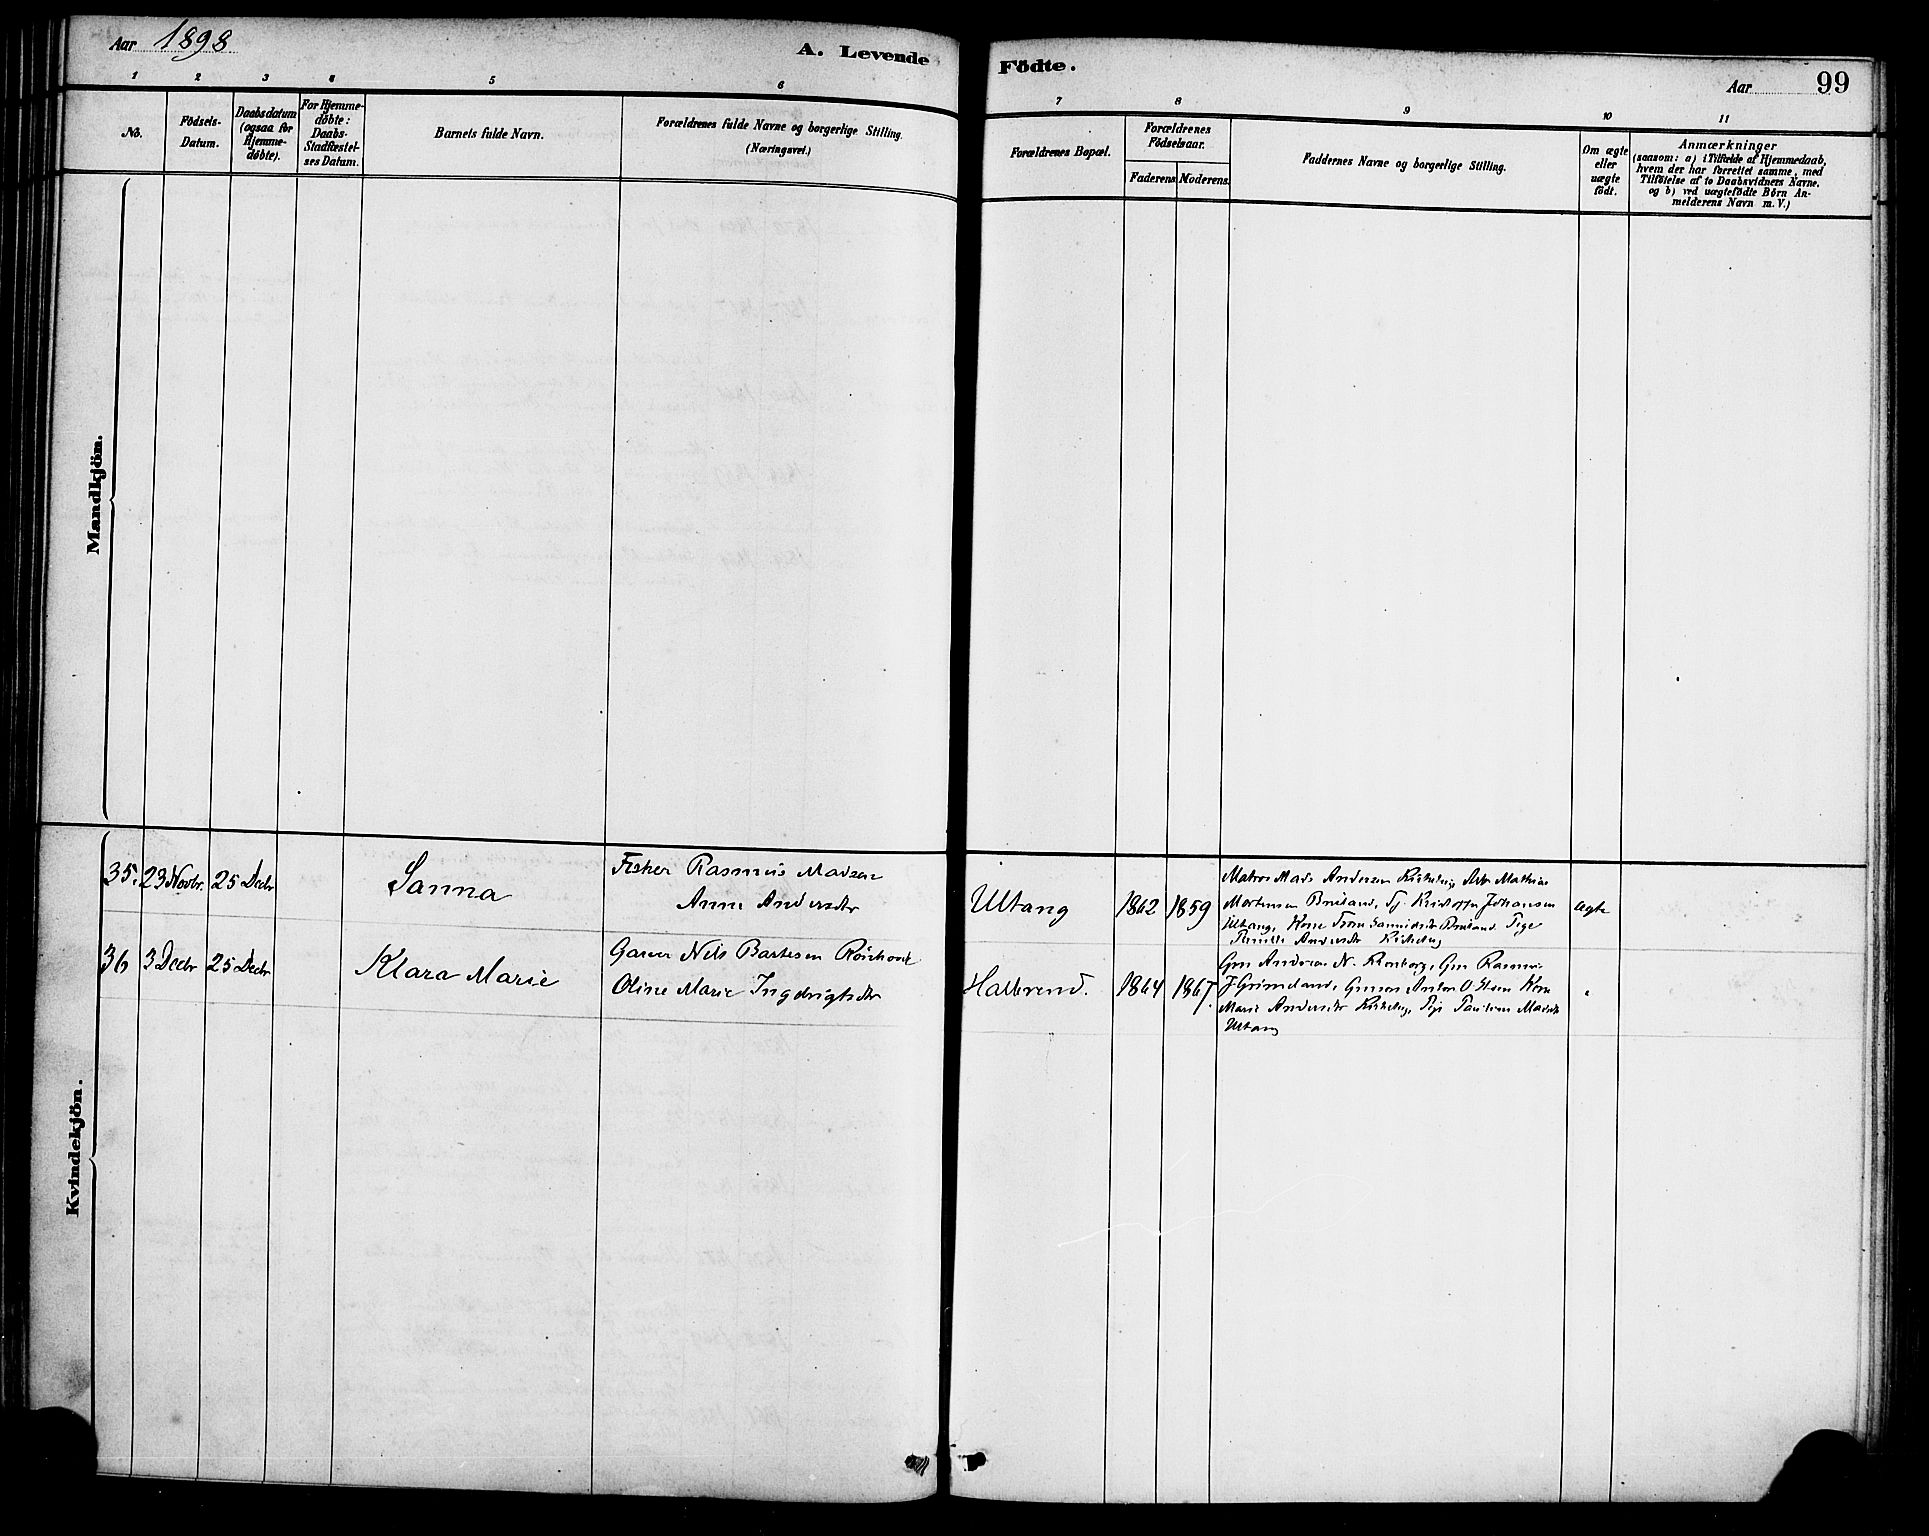 Aar 1898
A. Levende
Födte.
Aar 99
1 2 3 4 5 6
7 8 9 10 11
No.
Födsels-
Datum.
Daabsdatum
(ogsaa for
Hjemme-
döbte).
For Hjemme-
döbte:
Daabs-
Stadfæstel-
ses Datum.
Barnets fulde Navn.
Forældrenes fulde Navne og borgerlige Stilling.
(Næringsvei.)
Forældrenes Bopæl.
Forældrenes
Födselsaar.
Faderens.
Moderens.
Faddernes Navne og borgerlige Stilling.
Om ægte
eller
uægte
födt.
Anmærkninger
(saasom: a) i Tilfælde af Hjemmedaab,
hvem der har forrettet samme, med
Tilföielse af to Daabsvidners Navne.
og b) ved uægtefödte Börn An-
melderens Navn m. V.)
Mandkjön.
Kvindekjön.
35. 23 Novbr. 25 Decbr
Sanna
Fisker Rasmus Madsen
Anne Andersdtr
Ultang 1862 1859
Matros Mads Andersen Arb Mathias
Mortensen Johansen
Ultang, Kone Tige
Andersdtr
ægte
36 3 Decbr 25 Decbr
Klara Marie
Garver Nels Bartesen
Oline Marie Ingebrigtsdtr
Halbrend. 1864 1867.
Gm Andreas N. Gm Rasmus
J Grimeland, Anton O Kone
Marie Andersdtr Pige
Ultang